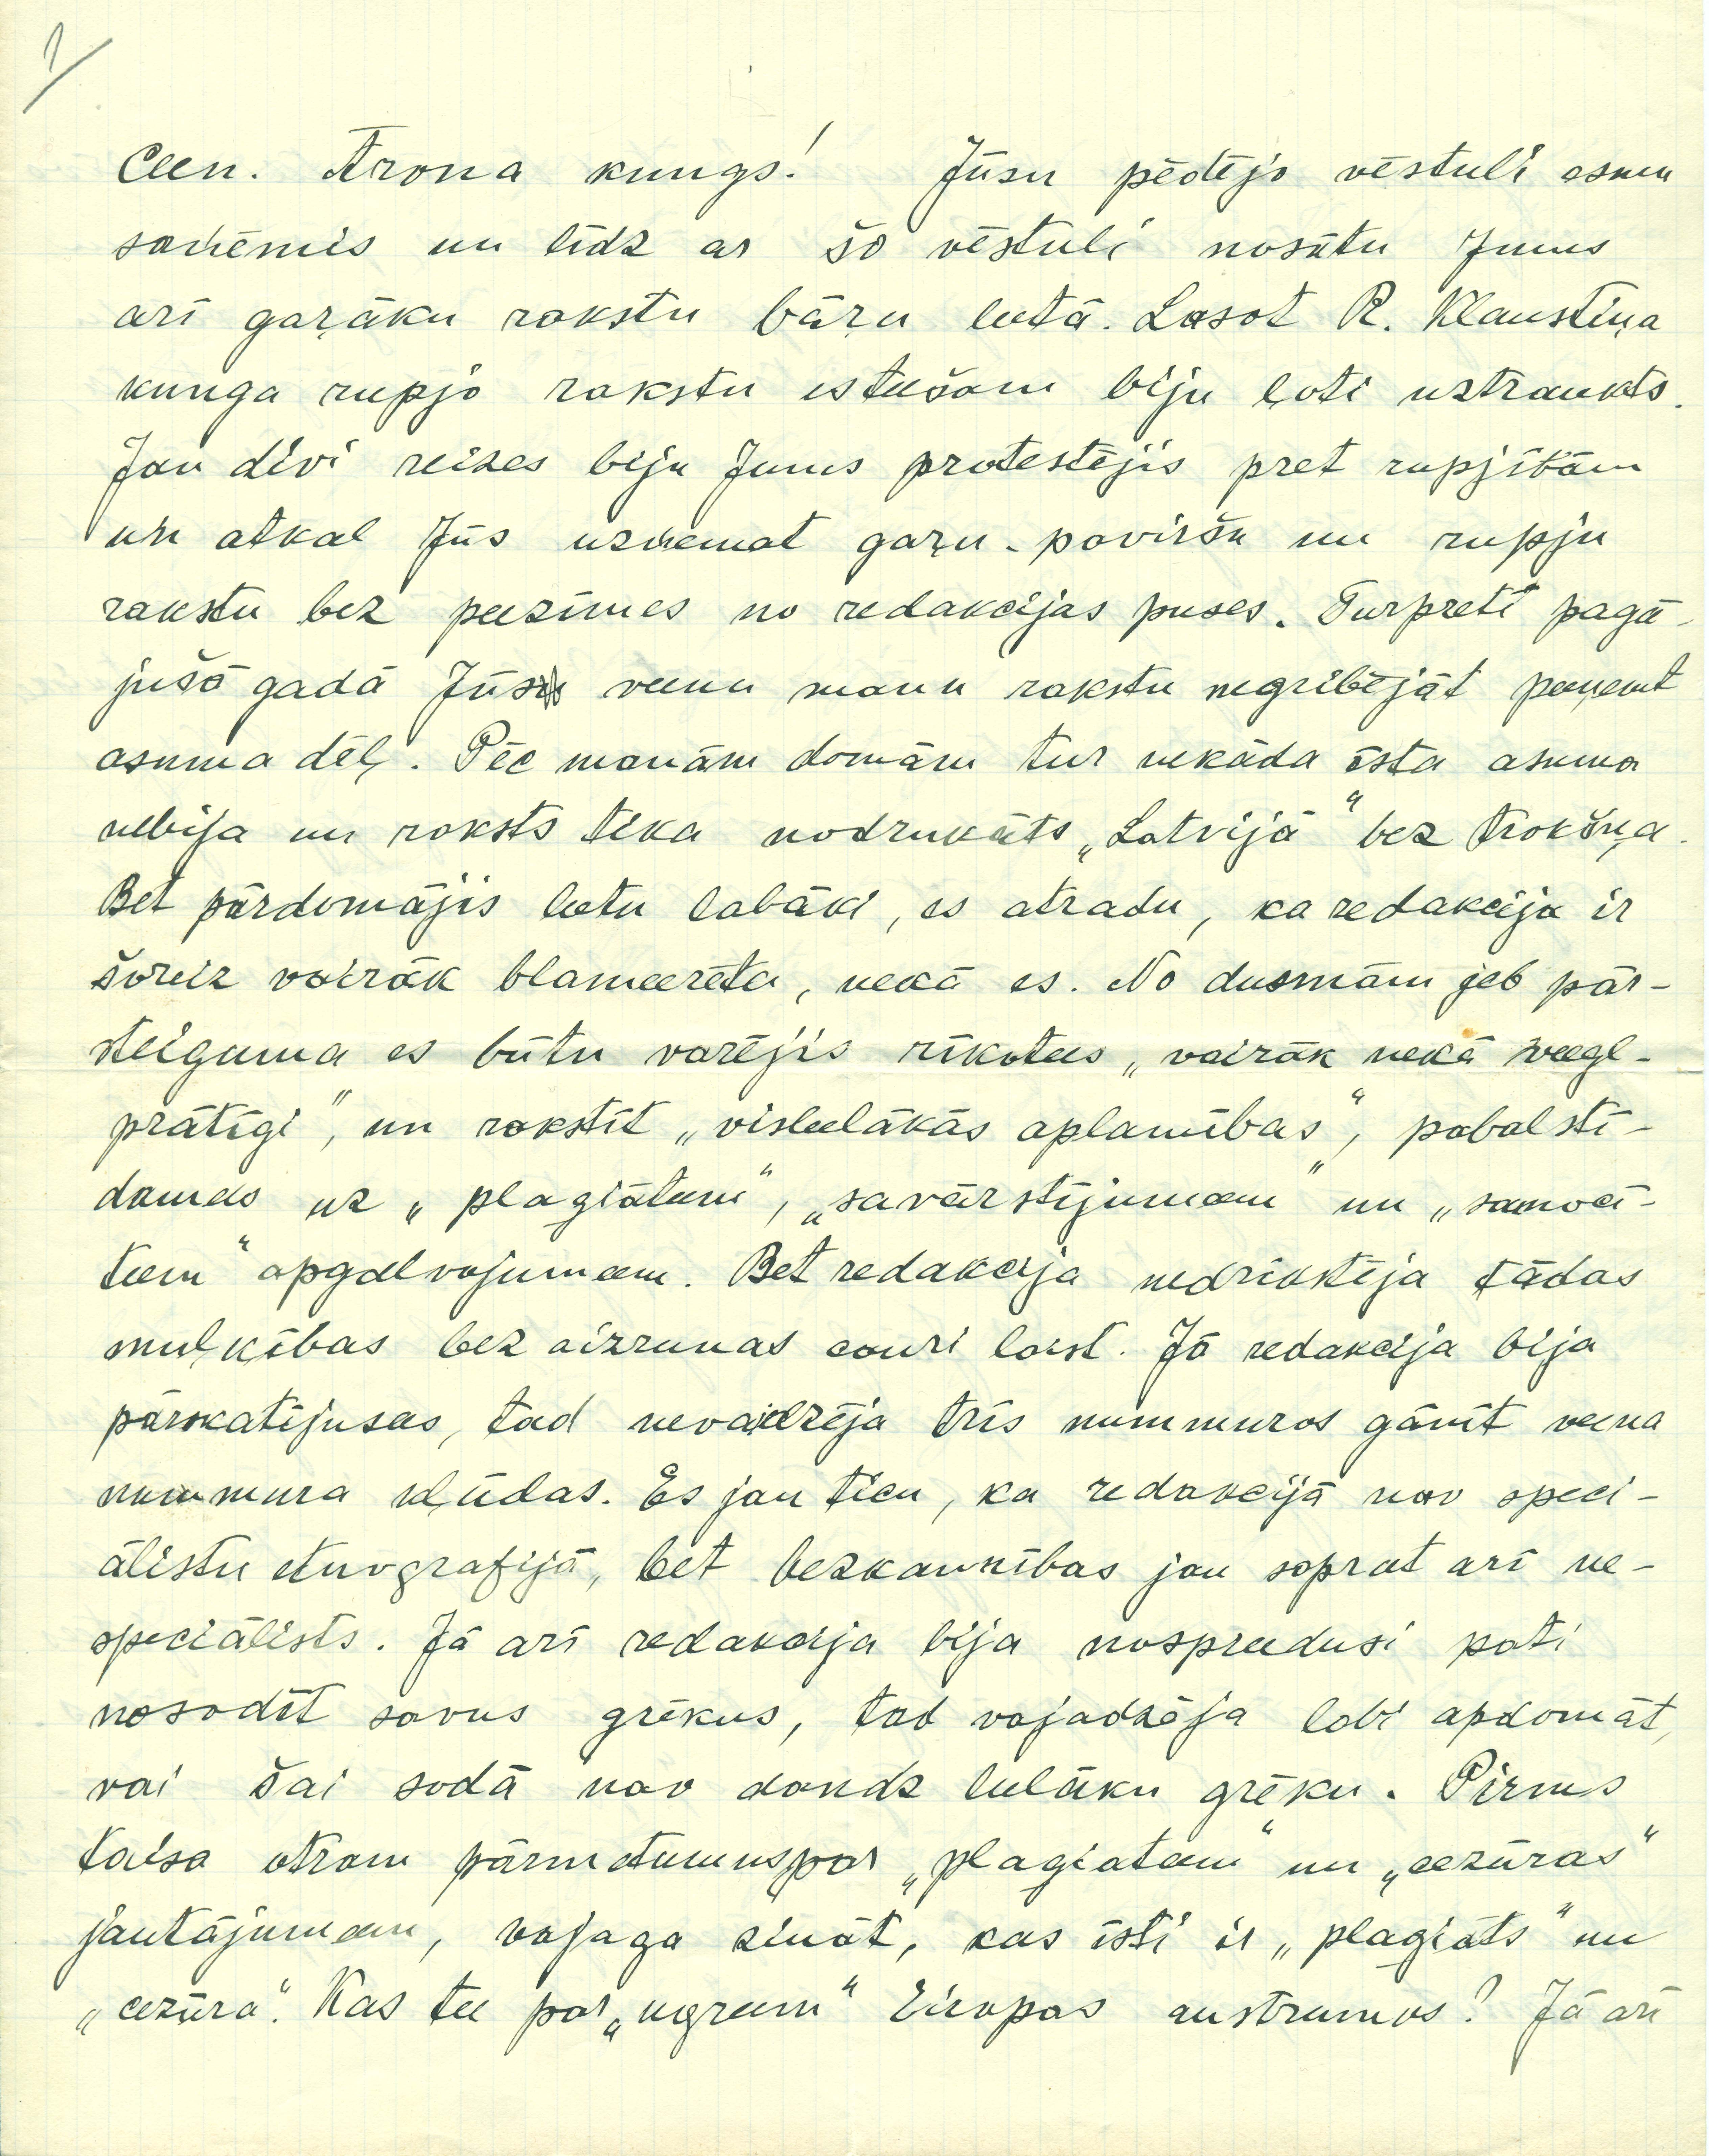 1/
Ceen. Arona kungs! Jūsu pēdējo vēstuli esmu
saņēmis un līdz ar šo vēstuli nosūtu Jums
arī gaŗāku rakstu bāŗu leetā. Lasot R. Klaustiņa
kunga rupjo rakstu esteešam biju ļoti uztraukts.
Jau divi reizes biju Jums protestējis pret rupjībām
un atkal Jūs uzņemat gaŗu-paviršu un rupju
rakstu bez peezīmes no redakcijas puses. Turpretī pagā-
jušā gadā Jūs veenu manu rakstu negribējāt peeņemt
asuma dēļ. Pēc manām domām tur nekāda īsta asuma
nebija un raksts tika nodrukāts „Latvijā“ bez trokšņa.
Bet pārdomājis leetu labāki, es atradu, ka redakcija ir
šoreiz vairāk blameerēta, nekā es. No dusmām jeb pār-
steiguma es būtu varējis rīkotees „vairāk nekā veegl-
prātīgi“, un rakstīt „visleelākās aplamības“, pabalstī-
damees uz „plagiāteem“, „savārstījumeem“ un „samoci-
teem“ apgalvojumeem. Bet redakcija nedrīkstēja tādas
muļķības bez aizrunas cauri laist. Jā redakcija bija
pārskatījusēs, tad nevajdzēja trīs nummuros gānīt veena
nummura kļūdas. Es jau ticu, ka redakcijā nav speci-
ālistu etnografijā, bet bezkaunības jau saprot arī ne-
speciālists. Jā arī redakcija bija nospreedusi pati
nosodīt savus grēkus, tad vajadzēja labi apdomāt,
vai šai sodā nav daudz leelāku grēku. Pirms
taisa otram pārmetumus par „plagiateem“ un „cezūras“
jautājumeem, vajaga zināt, kas īsti ir „plagiāts“ un
„cezūra“. Kas tee par „ugreem“ Eiropas austrumos? Jā arī